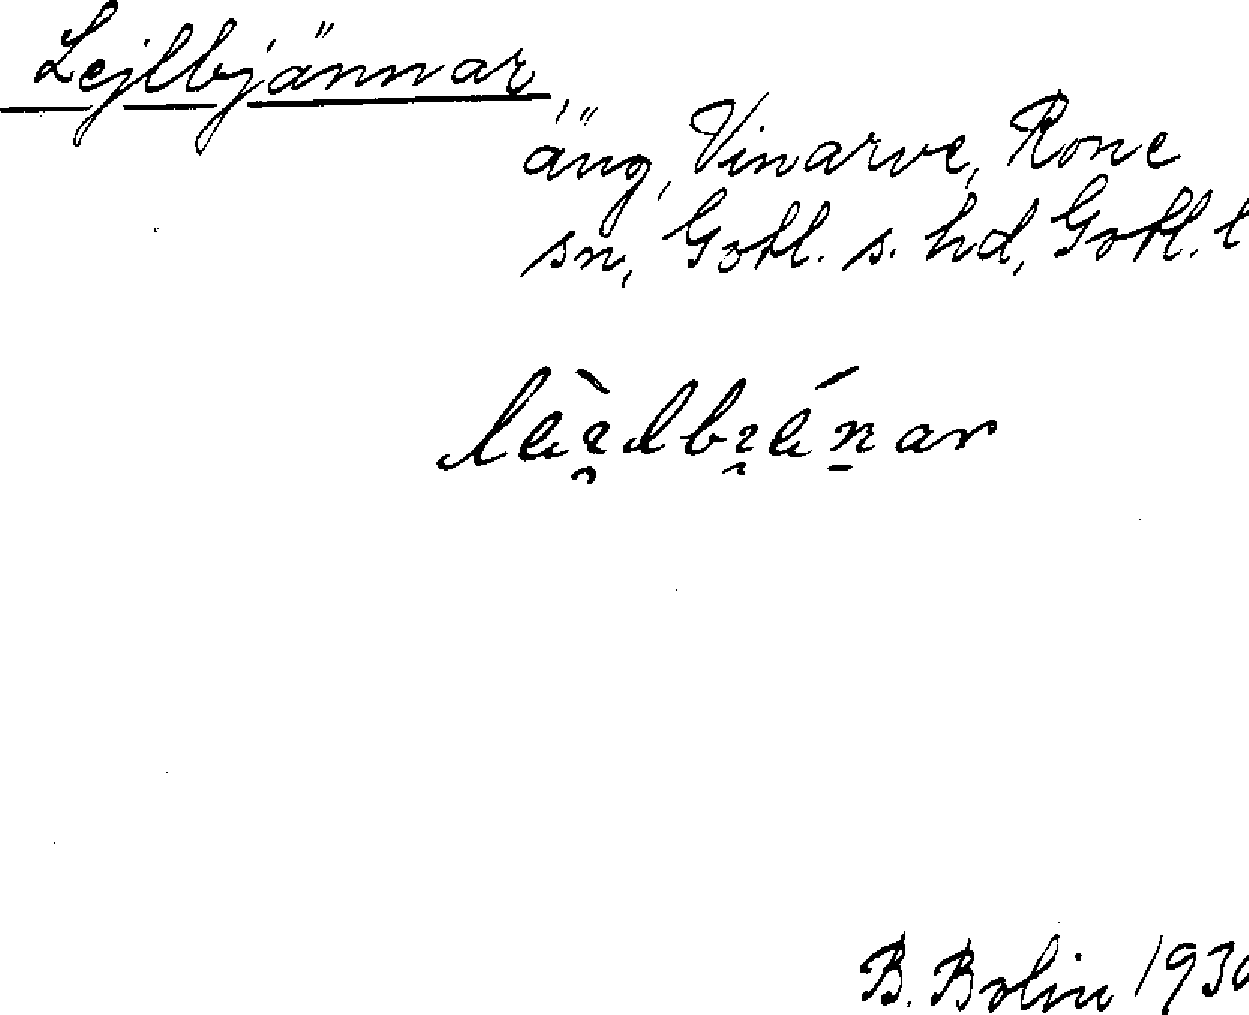 Lejlbjännar,
äng, Vinarve, Rone
sn, Gotl. s. hd, Gotl. l
B. Bolin 193